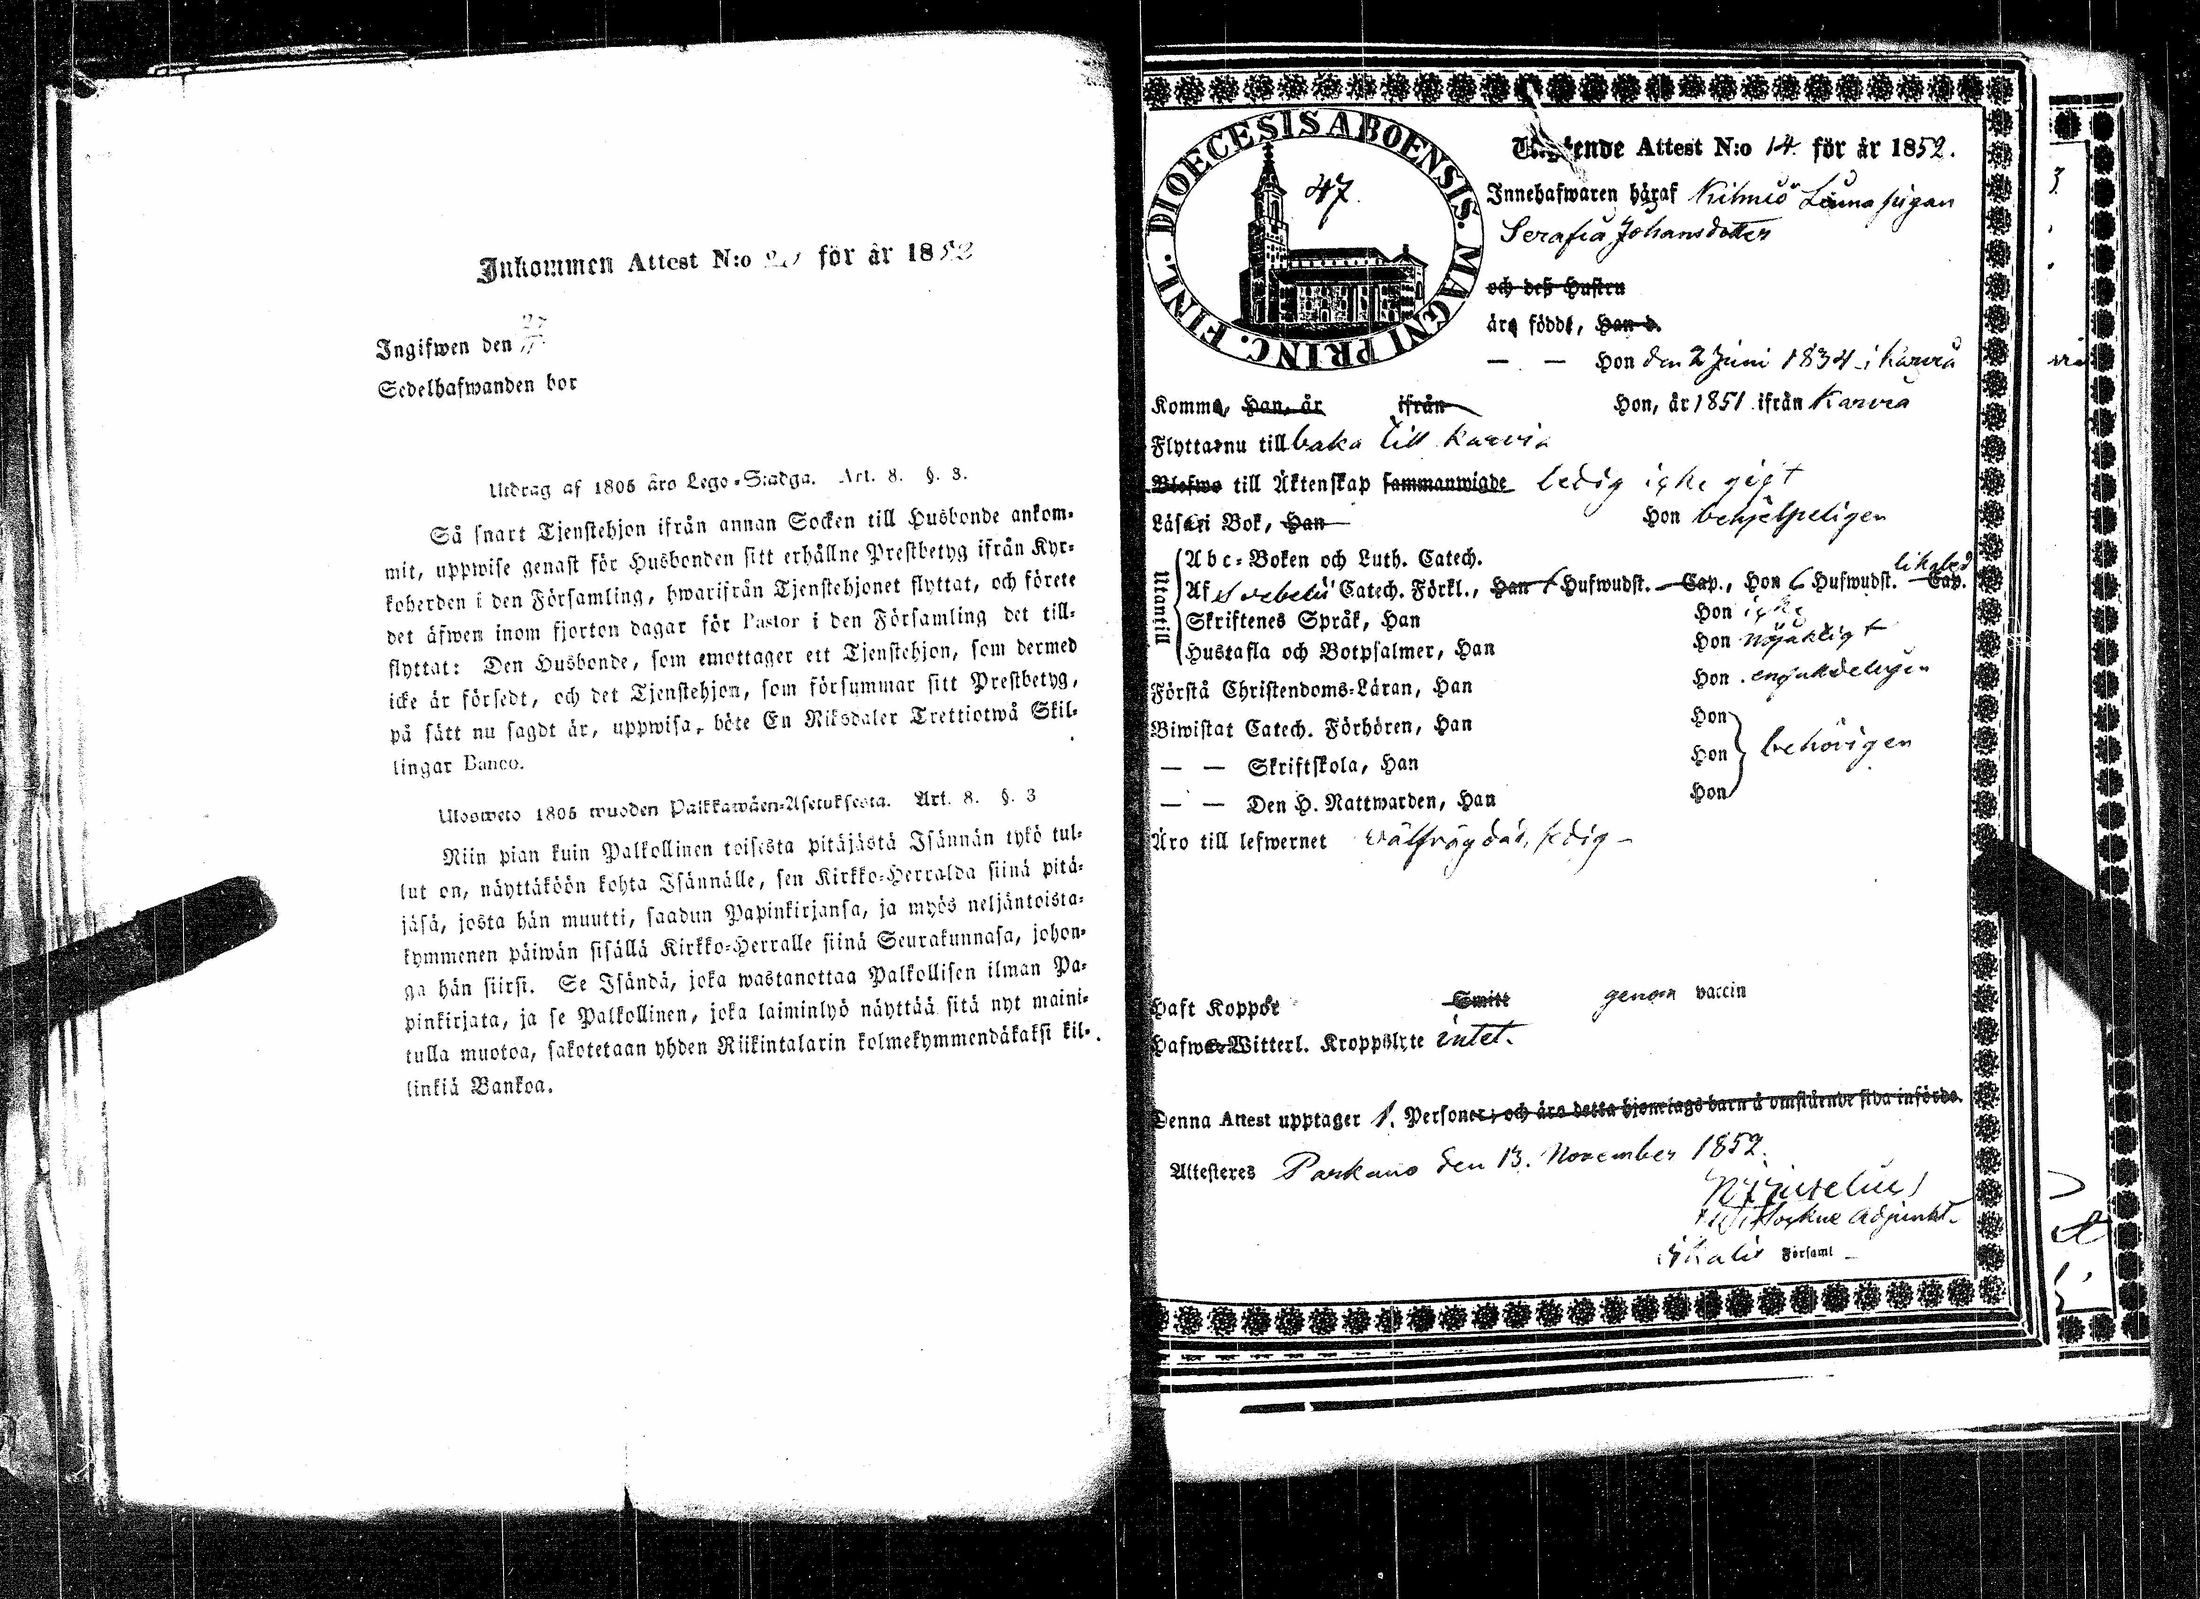 Inkommen Attest N:o för år 1852
Ingifwen den 27/11
Sedelhafwanden bor
Utdrag af 1805 års Lego-Stadga. Art. 8. §. 3.
Så snart Tjenstehjon ifrån annan Socken till Husbonde ankom-
mit, uppwise genast för Husbonden sitt erhållne Prestbetyg ifrån Kyr-
koherden i den Församling, hwarifrån Tjenstehjonet flyttat, och förete
det äfwen inom fjorton dagar för Pastor i den Församling det till-
flyttat: Den Husbonde, som emottager ett Tjenstehjon, som dermed
icke är försedt, och det Tjenstehjon, som försummar sitt Prestbetyg,
på sätt nu sagdt är, uppwisa, böte En Riksdaler Trettiotwå Skil-
lingar Banco.
Ulosweto 1805 wuoden Palkkawäen-Asetuksesta. Art. 8. §. 3
Niin pian kuin Palkollinen toisesta pitäjästä Isännän tykö tul-
lut on, näyttäköön kohta Isännälle, sen Kirkko-Herralda siinä pitä-
jäsä, josta hän muutti, saadun Papinkirjansa, ja myös neljäntoista-
kymmenen päiwän sisällä Kirkko-Herralle siinä Seurakunnasa, johon-
ga hän siirsi. Se Isändä, joka wastanottaa Palkollisen ilman Pa-
pinkirjata, ja se Palkollinen, joka laiminlyö näyttää sitä nyt maini-
tulla muotoa, sakotetaan yhden Riikintalarin kolmekymmendäkaksi kil-
linkiä Bankoa.
DIOECESIS ABOENSIS. MAGNI PRINC. FINL.
47.
Utgående Attest N:o 14. för år 1852.
Innehafwaren häraf Kihniö Linna pigan
Serafia Johansdotter
och deß Hustru
äro född, Han d.
— — Hon den 2 Juni 1834 i Karvia
Komma, Han, år ifrån Hon, år 1851 ifrån Karvia
Flytta nu till baka till Karvia
Blefwo till Äktenskap sammanwigde ledig icke gift
Läsa i Bok, Han Hon behjelpeligen
Utantill
Abc-Boken och Luth. Catech.
Af Svebelii Catech. Förkl., Han 6 Hufwudst. — Cap., Hon 6 Hufwudst. — Cap.
Skriftenes Språk, Han Hon icke
Hustafla och Botpsalmer, Han Hon nöjaktigt
Förstå Christendoms-Läran, Han Hon
Biwistat Catech. Förhören, Han Hon
— — Skriftskola, Han Hon behörigen
— — Den H. Nattwarden, Han Hon
Äro till lefwernet välfrägdad, ledig —
Haft Koppor Smitt genom vaccin
Hafwa Witterl. Kroppslyte intet.
Denna Attest upptager 1. Personer; och äro detta hjonelags barn å omstående sida införda.
Attesteres Parkano den 13. November 1852.
Adjunkt.
Ikalis Församl —